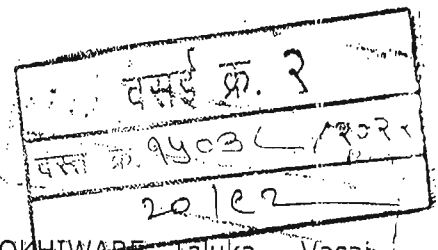 वसई क्र. २
दस्त क्र. १५०३८ /२०२२
२० / ८२
OKHIWARE Taluka Vasai